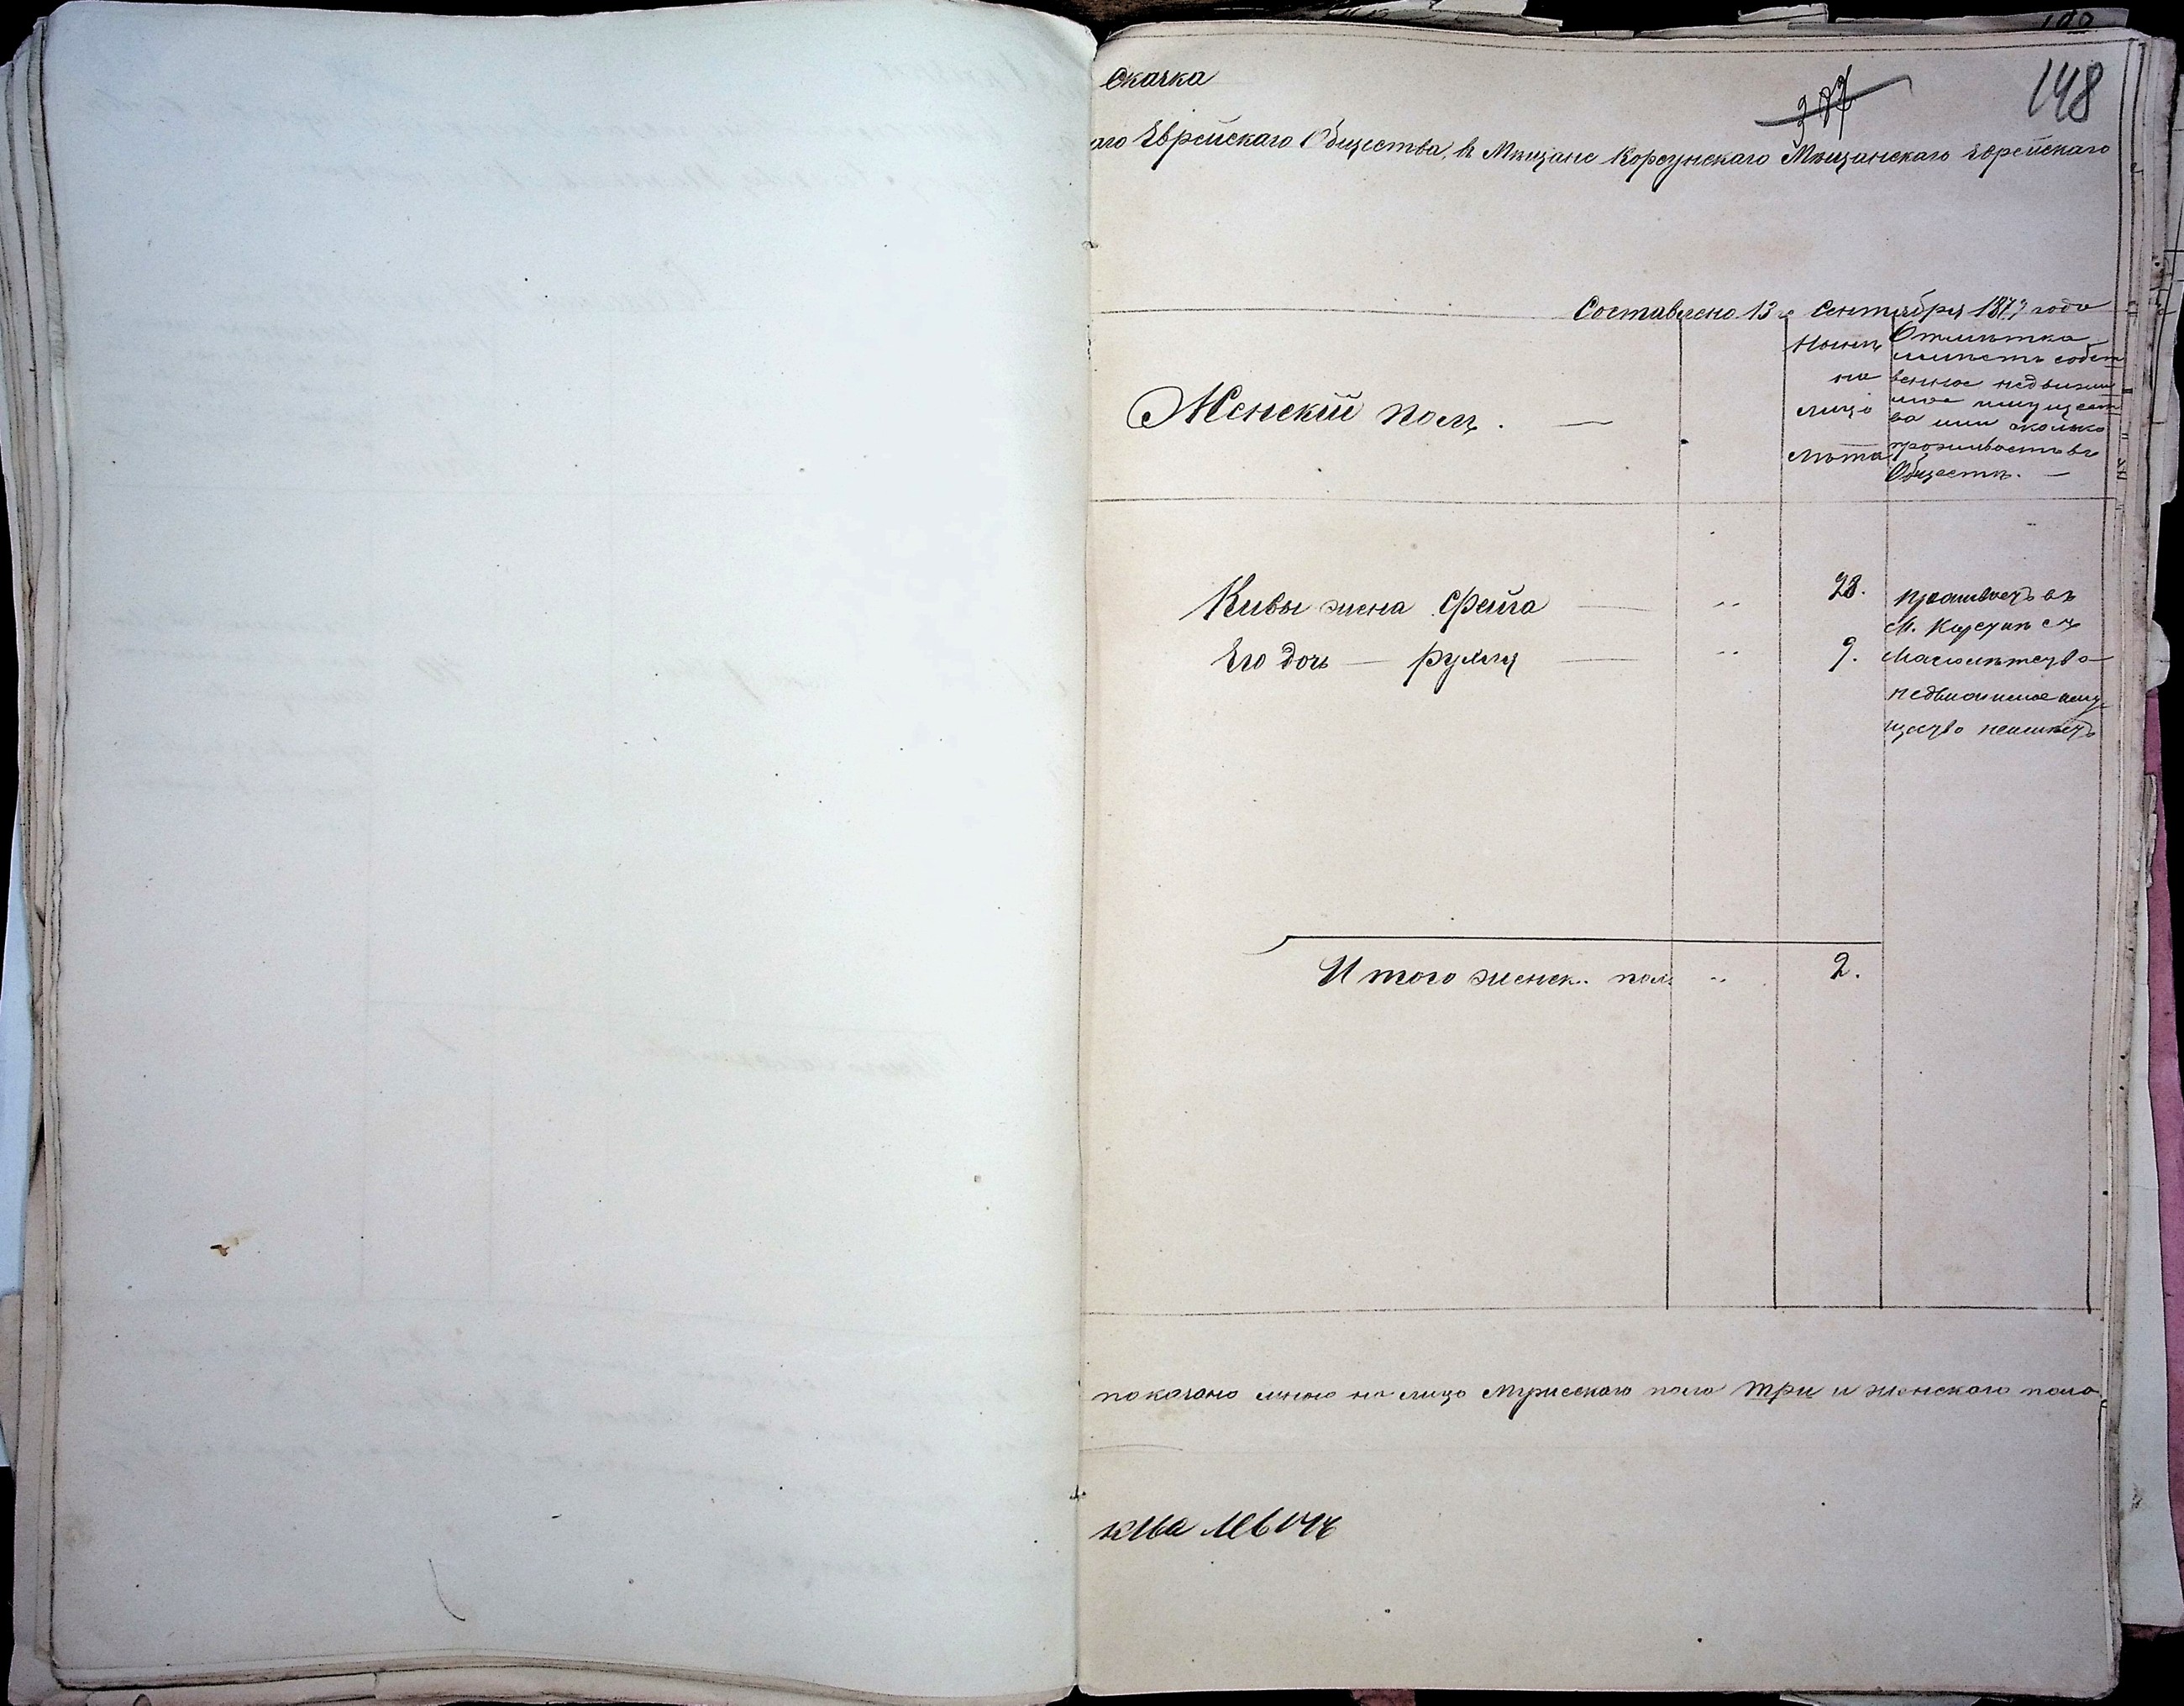 148
Скаска
аго Еврейскаго Общества, въ Мещане Корсунскаго Мещанскаго Еврейскаго
Составлено 13 го Сентября 1877 года
Женский полъ. —
Ныне
на
лицо
лета
Отметка
имеетъ собст
венное недвижи
мое имущест
ва или сколько
проживаетъ въ
Обществе. —
Кивы жена Фейга — " 28.
Его дочь — Рухля — " 9.
проживаетъ въ
М. Корсуне съ
малолетства
недвижимое иму
щество неимеетъ
Итого женск. пол. " 2.
показано мною на лицо Мужескаго пола три и женскаго пола